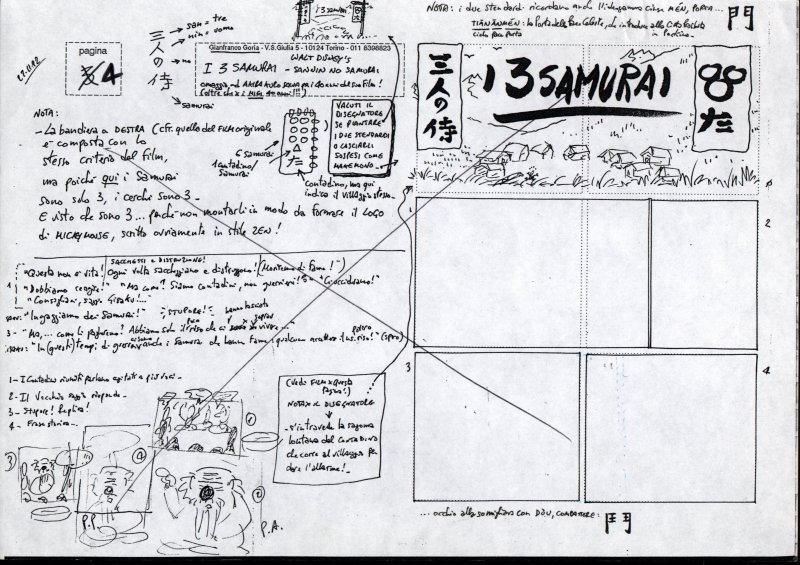 NOTA: i due stendardi ricordano anche l'ideogramma cinese MÉN, PORTA...
門
TIANANMEN: la Porta della Pace Celeste, che introduce alla Città Proibita
in Pechino.
i 3 samurai
san = tre
nin = uomo
no
samurai
三人の侍
27.11.92
pagina
4
Gianfranco Goria - V.S.Giulia 5 - 10124 Torino - 011 8398823
WALT DISNEY'S
I 3 SAMURAI - SANNIN NO SAMURAI
omaggio ad AKIRA KUROSAWA per i 40 anni del suo film!
(oltre che x i miei 40 anni!!!)
三人の侍
I 3 SAMURAI
た
NOTA:
- La bandiera a DESTRA (cfr. quella del FILM originale)
e' composta con lo
stesso criterio del film,
ma poiché qui i Samurai
sono solo 3, i cerchi sono 3 -
E visto che sono 3... perché non montarli in modo da formare il LOGO
di MICKEY MOUSE, scritto ovviamente in stile ZEN!
6 Samurai
1 Contadino/
Samurai
た
Contadino, ma qui
indica il villaggio stesso -
VALUTI IL
DISEGNATORE
SE PIANTARE
I DUE STENDARDI
O LASCIARLI
SOSPESI COME
KAKEMONO -
SACCHEGGI E DISTRUZIONE!
1
"Questa non è vita! Ogni volta saccheggiano e distruggono! (Moriremo di fame!")
"Dobbiamo reagire!" "Ma come? Siamo contadini, non guerrieri!" "Ci uccideranno!"
"Consigliaci, saggio Gisaku!..."
"Ingaggiamo dei Samurai!" - STUPORE!
3 - "Ma,... come li paghiamo? Abbiamo solo il riso che ci
"In (questi) tempi di guerra anche i Samurai che hanno fame, qualcuno accetterà il ns. riso!"
1 - I Contadini riuniti parlano agitati e più voci -
2 - Il Vecchio saggio risponde -
3 - Stupore! Replica!
4 - Frase storica -
(Vedi FILM x questa
pagina!)
NOTA X IL DISEGNATORE
- s'intravede la sagoma
lontana del contadino
che corre al villaggio per
dare l'allarme! -
1
2
3
4
P.P.
P.A.
1
2
3
4
... occhio alla somiglianza con DÒU, COMBATTERE:
鬥